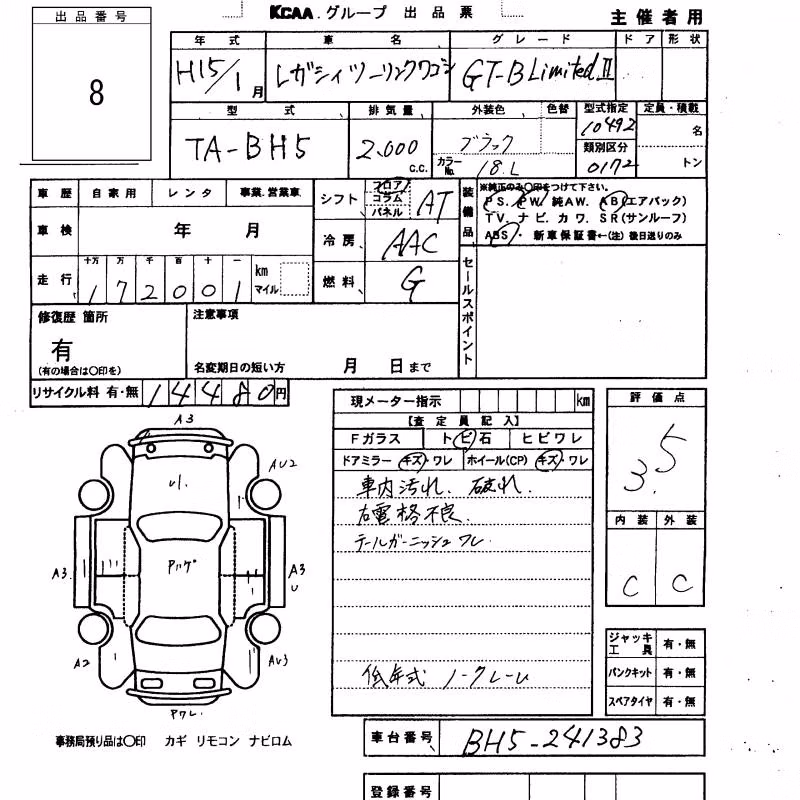 出品番号
8
KCAA.グループ 出品票
主催者用
年式 車名 グレード ドア 形状
H15/1月 レガシィツーリングワゴン GT-B Limited II
型式 排気量 外装色 色替 型式指定 定員・積載
TA-BH5 2,000 c.c. ブラック カラーNo. 18.L 10492 名
類別区分
0172 トン
車歴 自家用 レンタ 事業.営業車
シフト フロア コラム パネル AT
装備品 ※純正のみ〇印をつけて下さい。
PS. PW/ 純AW. AB(エアバック)
TV. ナビ. カワ. SR(サンルーフ)
ABS ・ 新車保証書←(注)後日送りのみ
車検 年 月
冷房 AAC
走行 十万 万 千 百 十 一 km マイル
172001
燃料 G
セールスポイント
修復歴 箇所
有
(有の場合は〇印を)
注意事項
名変期日の短い方 月 日まで
リサイクル料 有・無 14480円
現メーター指示 km
評価点
3.5
【査定員記入】
Fガラス トビ石 ヒビワレ
ドアミラー キズ・ワレ ホイール(CP) キズ・ワレ
車内汚れ. 破れ.
右電格不良.
テールガーニッシュワレ.
低年式 ノークレーム
内装 外装
C C
A3
AU2
A3.
A3
U
A2
AU3
Pワレ.
ジャッキ 工具 有・無
パンクキット 有・無
スペアタイヤ 有・無
事務局預り品は〇印 カギ リモコン ナビロム
車台番号 BH5-241383
登録番号